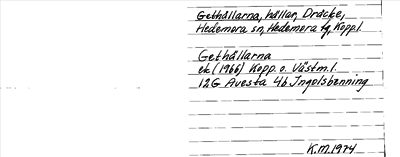 Gethällarna, hällar, Dräcke,
Hedemora sn, Hedemora tg, Kopp.l.
Gethällarna
ek (1966) Kopp. o. Västm.l.
12G Avesta 4b Ingolsbenning
K.M. 1974